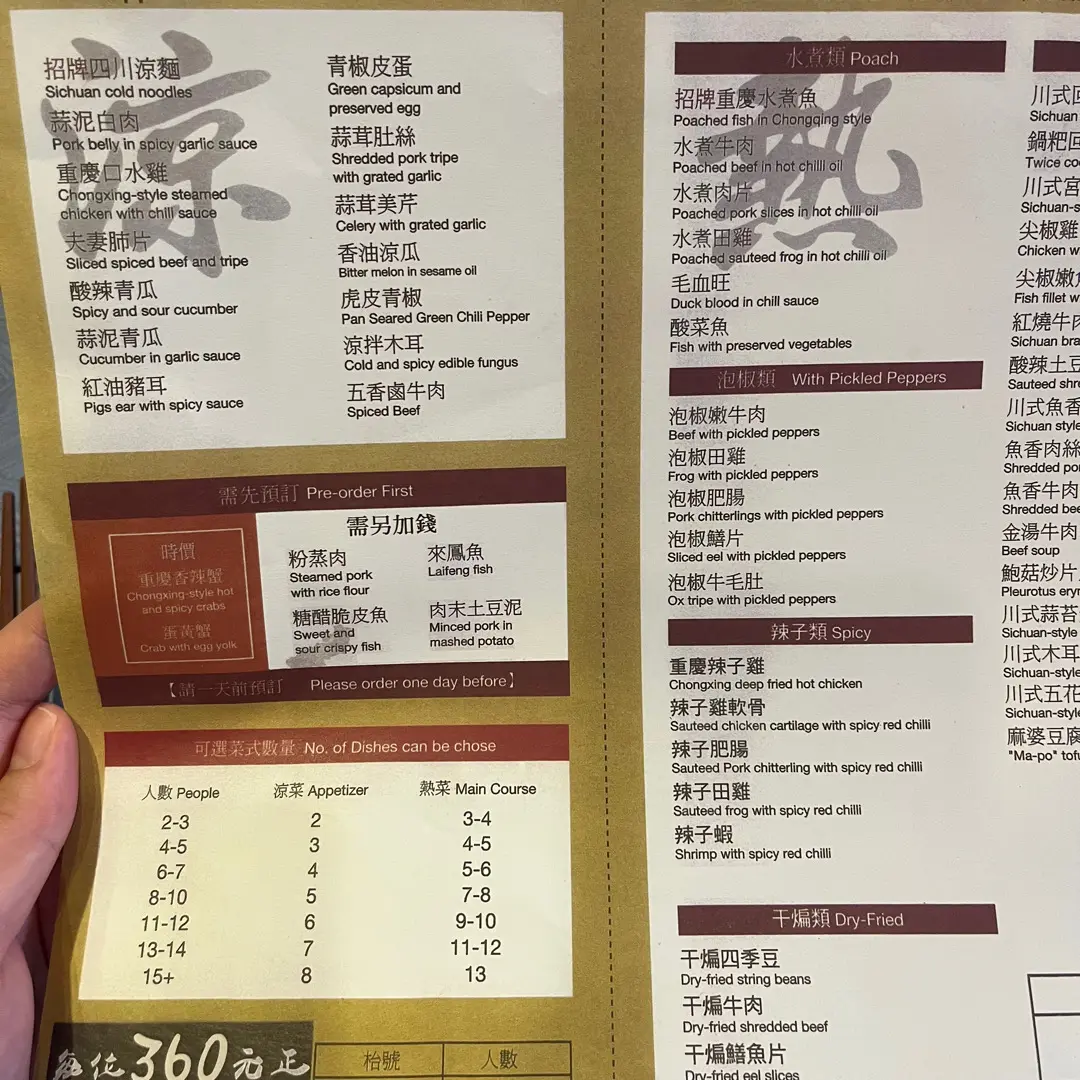 涼
招牌四川涼麵
Sichuan cold noodles
蒜泥白肉
Pork belly in spicy garlic sauce
重慶口水雞
Chongxing-style steamed
chicken with chill sauce
夫妻肺片
Sliced spiced beef and tripe
酸辣青瓜
Spicy and sour cucumber
蒜泥青瓜
Cucumber in garlic sauce
紅油豬耳
Pigs ear with spicy sauce
青椒皮蛋
Green capsicum and
preserved egg
蒜茸肚絲
Shredded pork tripe
with grated garlic
蒜茸美芹
Celery with grated garlic
香油涼瓜
Bitter melon in sesame oil
虎皮青椒
Pan Seared Green Chili Pepper
涼拌木耳
Cold and spicy edible fungus
五香鹵牛肉
Spiced Beef
需先預訂 Pre-order First
時價
重慶香辣蟹
Chongxing-style hot
and spicy crabs
蛋黃蟹
Crab with egg yolk
需另加錢
粉蒸肉
Steamed pork
with rice flour
糖醋脆皮魚
Sweet and
sour crispy fish
來鳳魚
Laifeng fish
肉末土豆泥
Minced pork in
mashed potato
【請一天前預訂 Please order one day before】
可選菜式數量 No. of Dishes can be chose
人數 People 涼菜 Appetizer 熱菜 Main Course
2-3 2 3-4
4-5 3 4-5
6-7 4 5-6
8-10 5 7-8
11-12 6 9-10
13-14 7 11-12
15+ 8 13
每位360元正
枱號 人數
熱
水煮類 Poach
招牌重慶水煮魚
Poached fish in Chongqing style
水煮牛肉
Poached beef in hot chilli oil
水煮肉片
Poached pork slices in hot chilli oil
水煮田雞
Poached sauteed frog in hot chilli oil
毛血旺
Duck blood in chill sauce
酸菜魚
Fish with preserved vegetables
泡椒類 With Pickled Peppers
泡椒嫩牛肉
Beef with pickled peppers
泡椒田雞
Frog with pickled peppers
泡椒肥腸
Pork chitterlings with pickled peppers
泡椒鱔片
Sliced eel with pickled peppers
泡椒牛毛肚
Ox tripe with pickled peppers
辣子類 Spicy
重慶辣子雞
Chongxing deep fried hot chicken
辣子雞軟骨
Sauteed chicken cartilage with spicy red chilli
辣子肥腸
Sauteed Pork chitterling with spicy red chilli
辣子田雞
Sauteed frog with spicy red chilli
辣子蝦
Shrimp with spicy red chilli
干煸類 Dry-Fried
干煸四季豆
Dry-fried string beans
干煸牛肉
Dry-fried shredded beef
干煸鱔魚片
Dry-fried eel slices
川式回
Sichuan
鍋粑回
Twice
川式宮
Sichuan-s
尖椒雞
Chicken
尖椒嫩
Fish fillet
紅燒牛肉
Sichuan bra
酸辣土豆
Sauteed shr
川式魚香
Sichuan style
魚香肉絲
Shredded por
魚香牛肉
Shredded bee
金湯牛肉
Beef soup
鮑菇炒片
Pleurotus eryn
川式蒜苔
Sichuan-style
川式木耳
Sichuan-style
川式五花
Sichuan-style
麻婆豆腐
"Ma-po" tofu